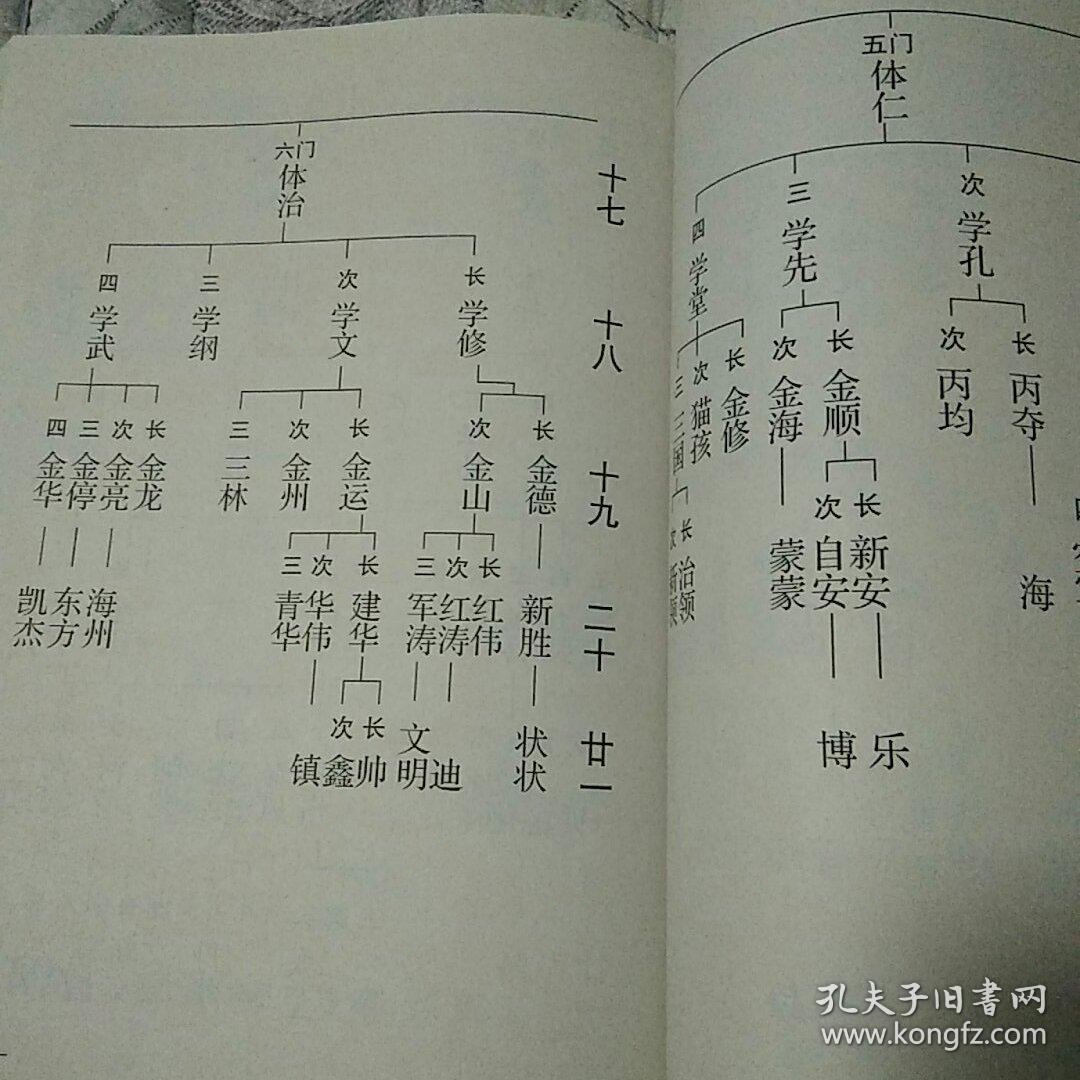 五门
体仁
次 学孔
三 学先
四 学堂
长 丙夺
次 丙均
长 金顺
次 金海
长 金修
次 猫孩
三 三国
海
长 新安
次 自安
蒙蒙
长 治领
次
乐
博
十七
十八
十九
二十
廿一
六门
体治
长 学修
次 学文
三 学纲
四 学武
长 金德
次 金山
长 金运
次 金州
三 三林
长 金龙
次 金亮
三 金停
四 金华
新胜
长 红伟
次 红涛
三 军涛
长 建华
次 华伟
三 青华
海州
东方
凯杰
状状
迪
文明
长 帅
次 鑫
镇
孔夫子旧書网
www.kongfz.com